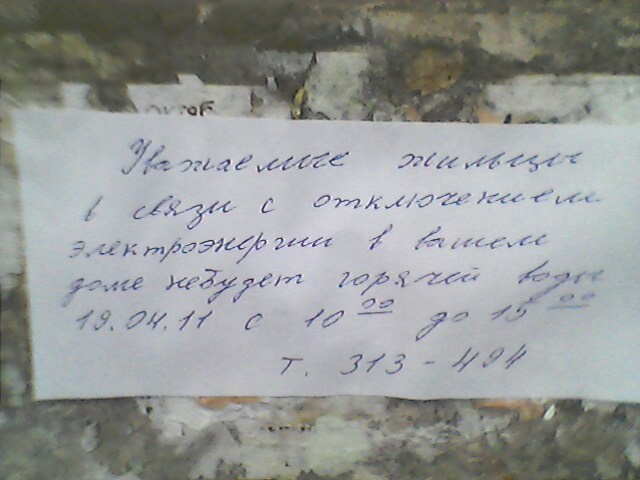 октяб
Уважаемые жильцы
в связи с отключением
электроэнергии в вашем
доме небудет горячей воды
19.04.11 с 10 00 до 15 00
т. 313-494